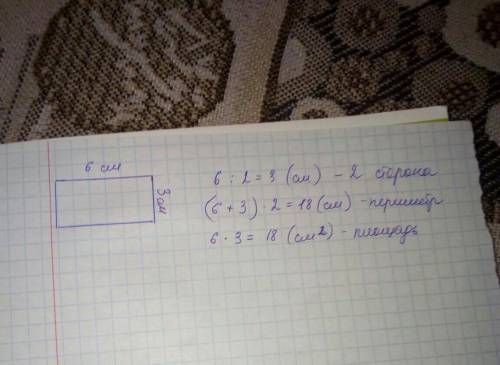 6 см
3 см
6 : 2 = 3 (см) - 2 сторона
(6 + 3) · 2 = 18 (см) - периметр
6 · 3 = 18 (см2) - площадь